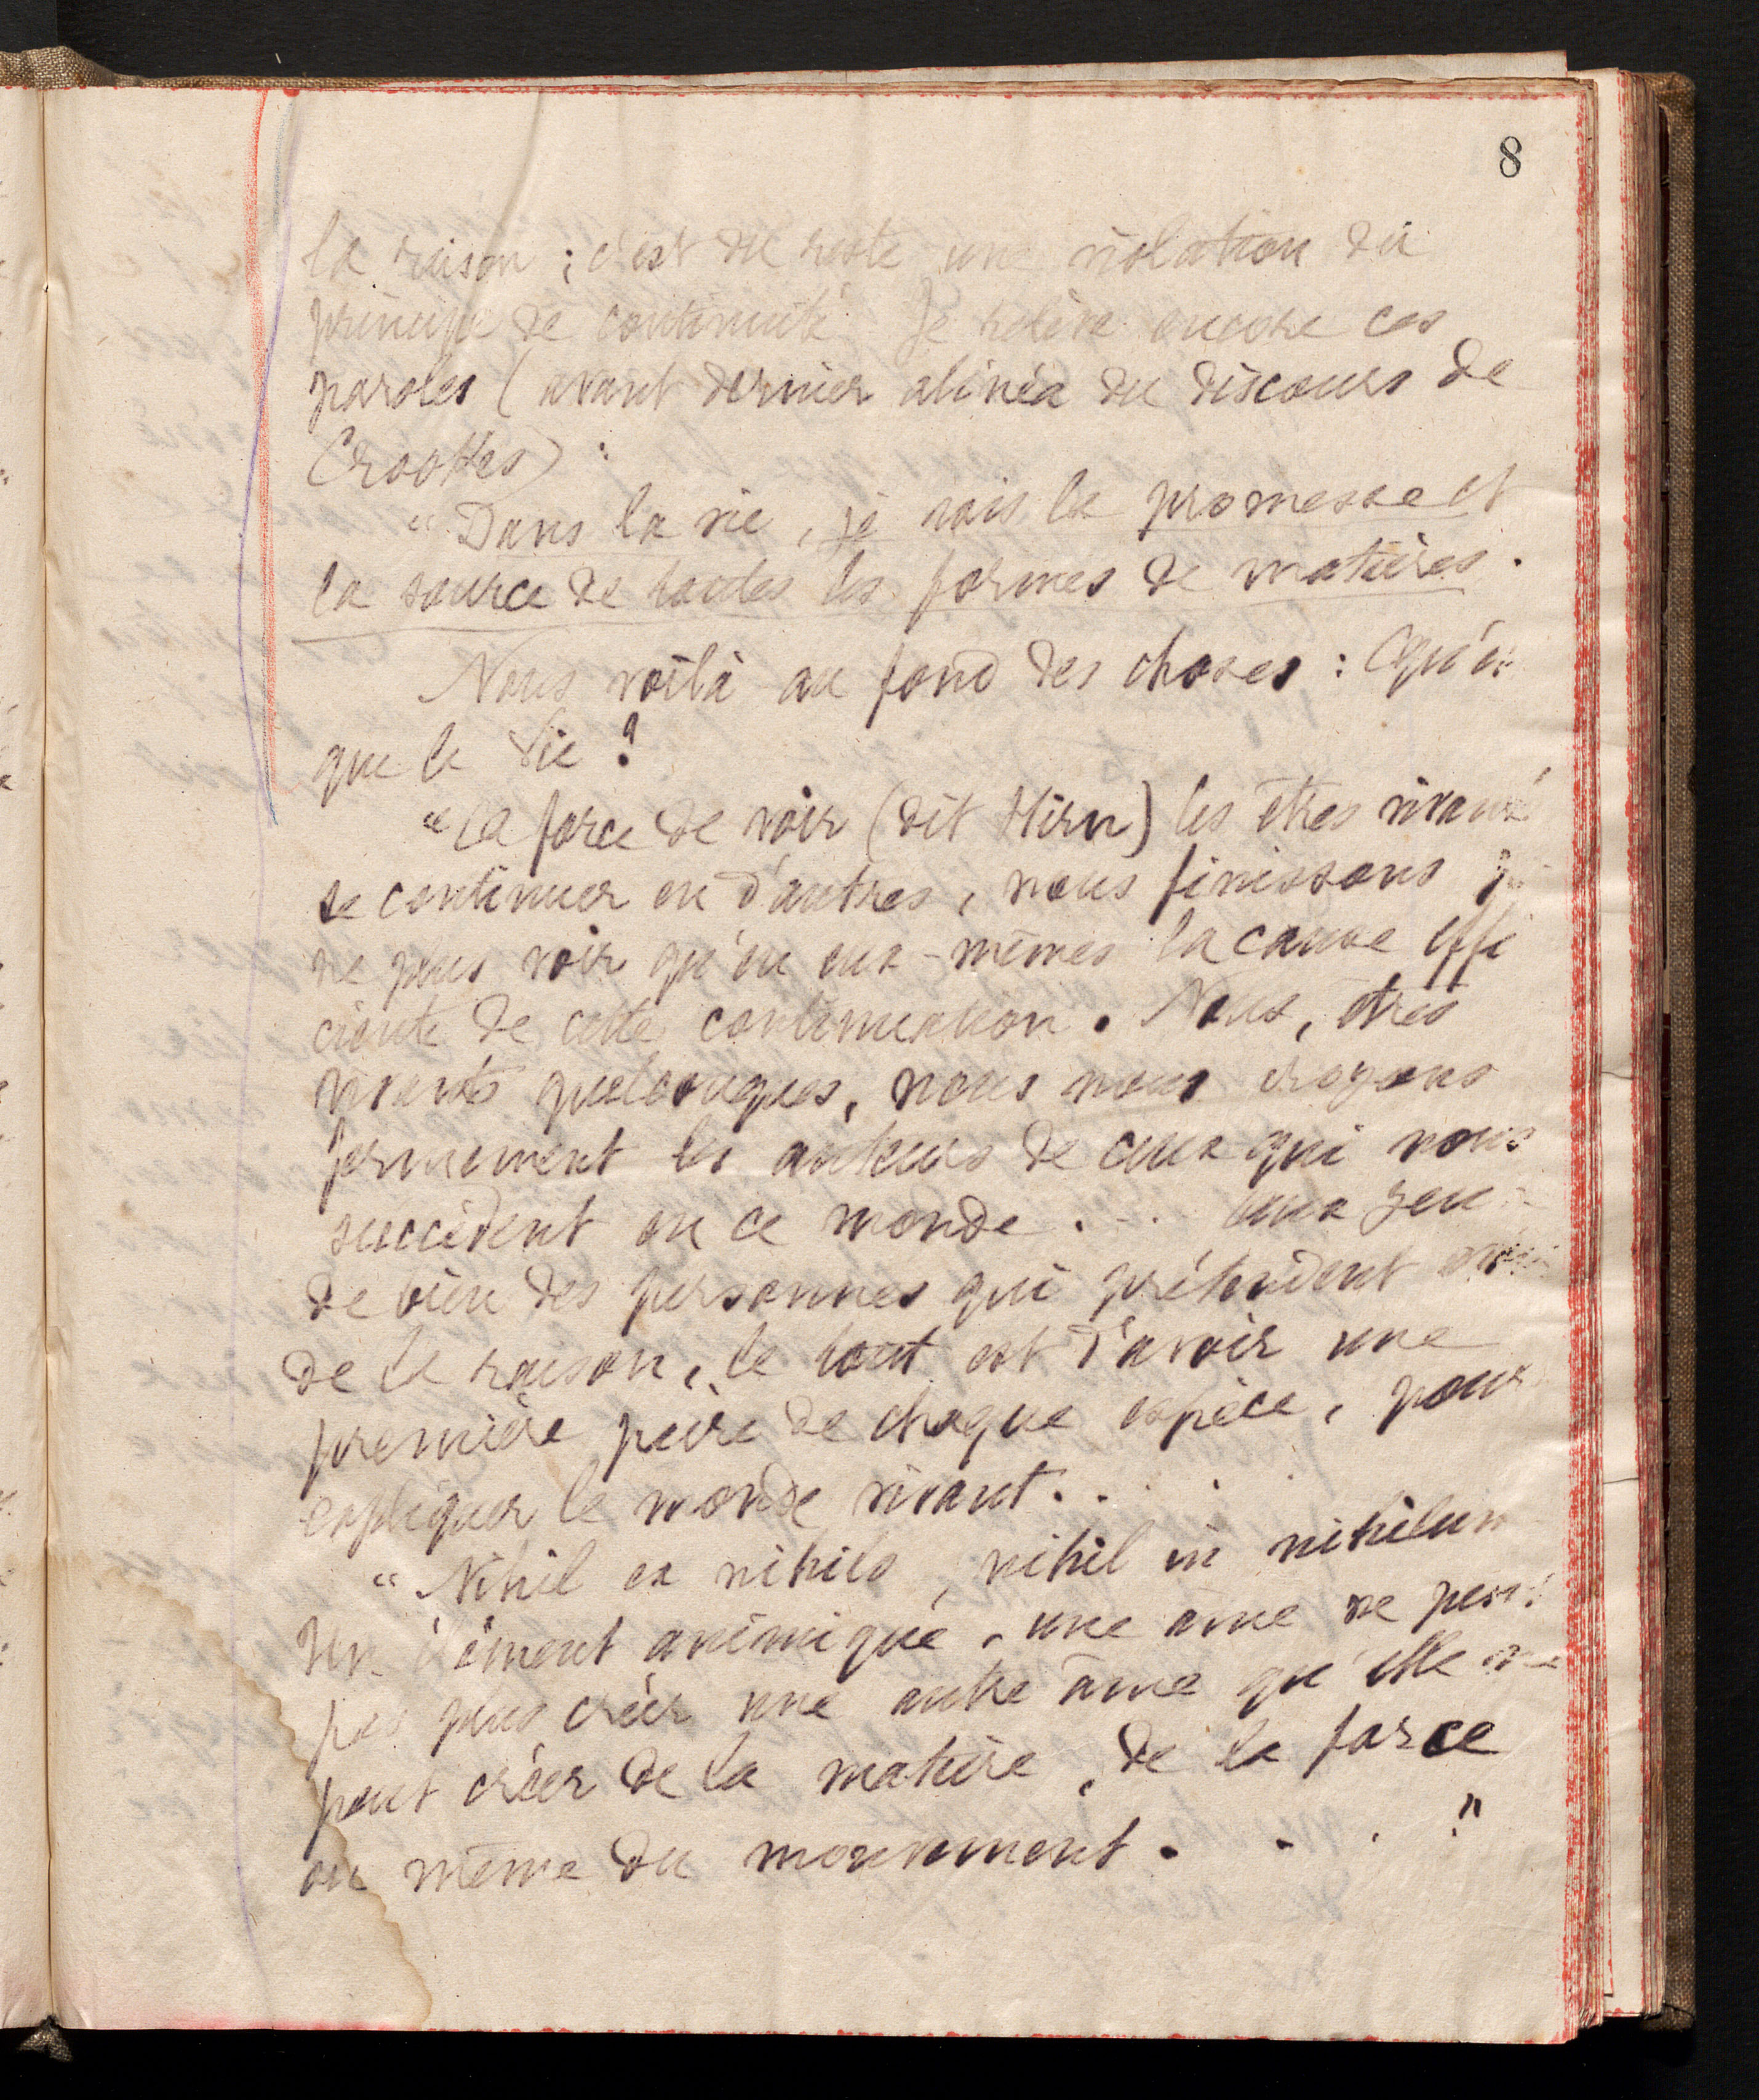 8
la raison ; c'est du reste une violation du
principe de continuité. Je relève encore ces
paroles (avant dernier alinéa du discours de
Crookes) :
"Dans la vie, je vois la promesse et
la source de toutes les formes de matières.
Nous voilà au fond des choses : Qu'est
que la Vie ?
"A force de voir (dit Hirn) les êtres vivants
se continuer en d'autres, nous finissons
ne plus voir qu'en eux-mêmes la cause effi
ciente de cette continuation. Nous, êtres
vivants quelconques, nous nous croyons
fermement les auteurs de ceux qui nous
succèdent en ce monde . . . aux yeux
de bien des personnes qui prétendent
de la raison, le tout est d'avoir une
première paire de chaque espèce, pour
expliquer le monde vivant. . . .
"Nihil ex nihilo, nihil in nihilum
Un élément animique, une âme ne peut
pas plus créer une autre âme qu'elle ne
peut créer de la matière, de la force
ou même du mouvement . . . . "